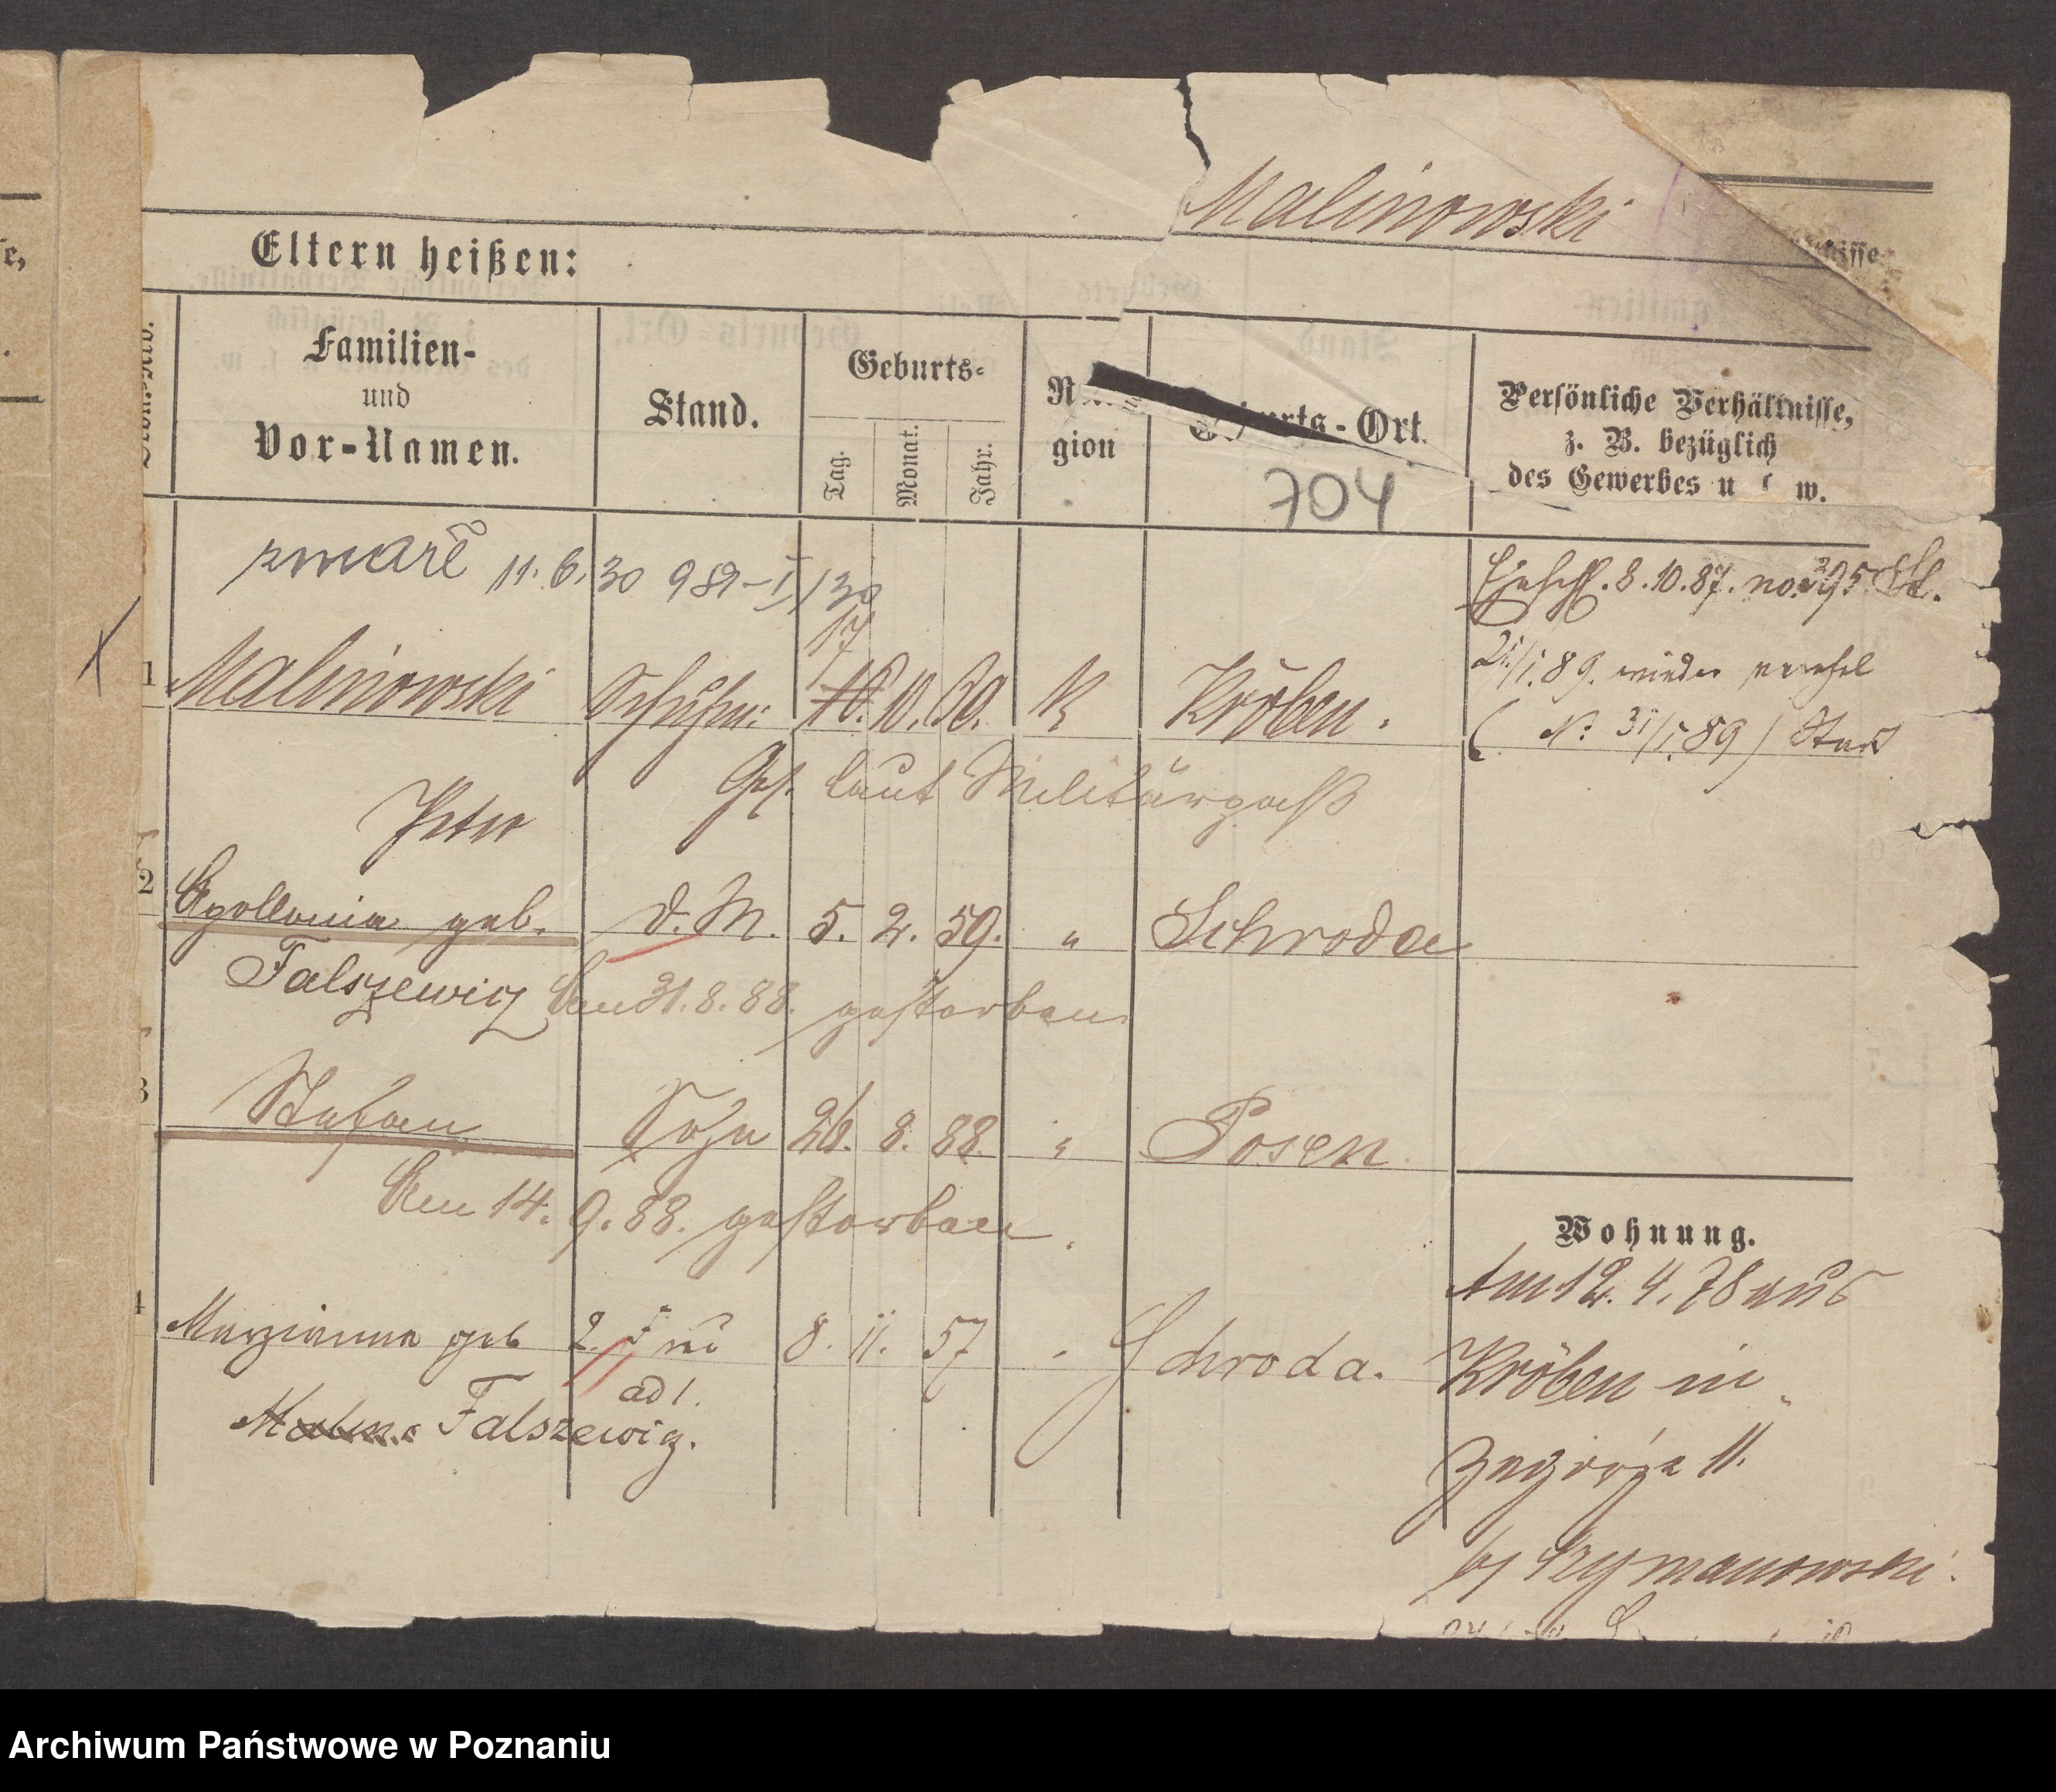 Malinowski
Eltern heißen:
Familien-
und
Vor-Namen.
Stand.
Geburts-
Tag.
Monat.
Jahr.
gion
Ort.
704
Persönliche Verhältnisse,
z. B. bezüglich
des Gewerbes u w.
zmarł 11.6.30 989-I/30
Ehesch. 8.10.87. no. 395. St.
17
1 Malinowski Schuhm: 10. 10. 60. K Kröben.
21/1.89. wieder verehel
(N: 31/1.89) Stand
Peter
Gef. laut Militärpaß
2 Apollonia geb. d. M. 5. 2. 59. " Schroda
Falszewicz Am 31.8.88. gestorben
3 Stefan Sohn 26. 8. 88. " Posen
Am 14. 9. 88. gestorben.
Wohnung.
Am 12. 4. 78 aus
4 Maryianna geb 2. Frau 8. 11. 57 Schroda.
ad 1.
Falszewicz.
Kröben in
Zagórze 11.
b/ Szymanowski.
Archiwum Państwowe w Poznaniu